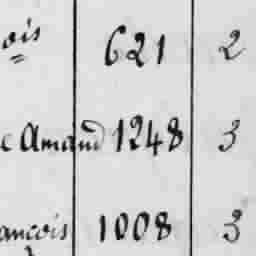 ois 621 2
e Amand 1248 3
ancois 1008 3